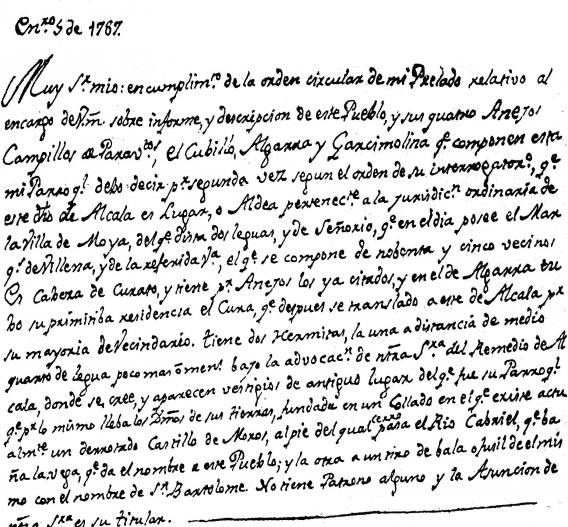 En.ro 5 de 1787.
Muy S.r mio: en cumplim.to de la orden circular de mi Prelado relativo al
encargo de Vm. sobre informe, y descripcion de este Pueblo, y sus quatro Anejos
Campillos de Parav.tos, el Cubillo, Algarra y Garcimolina q.e componen esta
mi Parroq.l debo decir p.r segunda vez segun el orden de su interrogator.o, q.e
este dho de Alcala es Lugar, o Aldea pertenec.te a la jurisdic.n ordinaria de
la Villa de Moya, del q.e dista dos leguas, y de Señorio, q.e en el dia posee el Mar
q.s de Villena, y de la referida V.a, el q.e se compone de nobenta y cinco vecinos
Es Cabeza de Curato, y tiene p.r Anejos los ya citados, y en el de Algarra tu
bo su primitiba residencia el Cura, q.e despues se translado a este de Alcala p.r
su mayoria de Vecindario. tiene dos Hermitas, la una a distancia de medio
quarto de legua poco mas o men.s bajo la advocac.n de ntra S.ra del Remedio de Al
cala, donde se, cree, y aparecen vestigios de antiguo lugar del q.e fue su Parroq.l
q.e p.r lo mismo lleba los Diezmos de sus tierras, fundada en un Collado en el q.e existe actu
alm.te un derrotado Castillo de Moros, al pie del qual cerro pasa el Rio Cabriel, q.e ba
ña la vega, q.e da el nombre a este Pueblo; y la otra a un tiro de bala o fusil de el mis
mo con el nombre de S.n Bartolome. No tiene Patrono alguno y la Asuncion de
ntra S.ra es su titular.